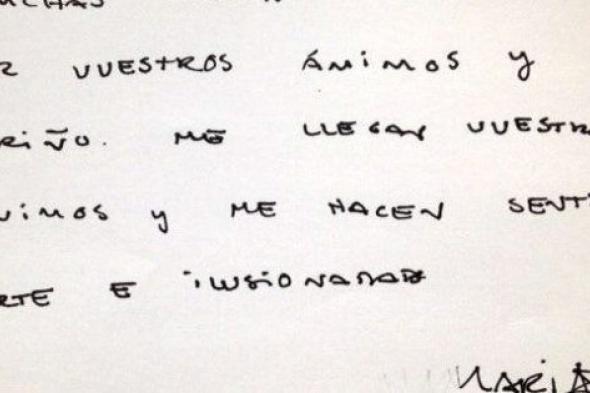 UCHAS
R VUESTROS ÁNIMOS Y
RIÑO. ME LLEGAN VUESTR
NIMOS Y ME HACEN SENTI
RTE E ILUSIONADA
MARIA